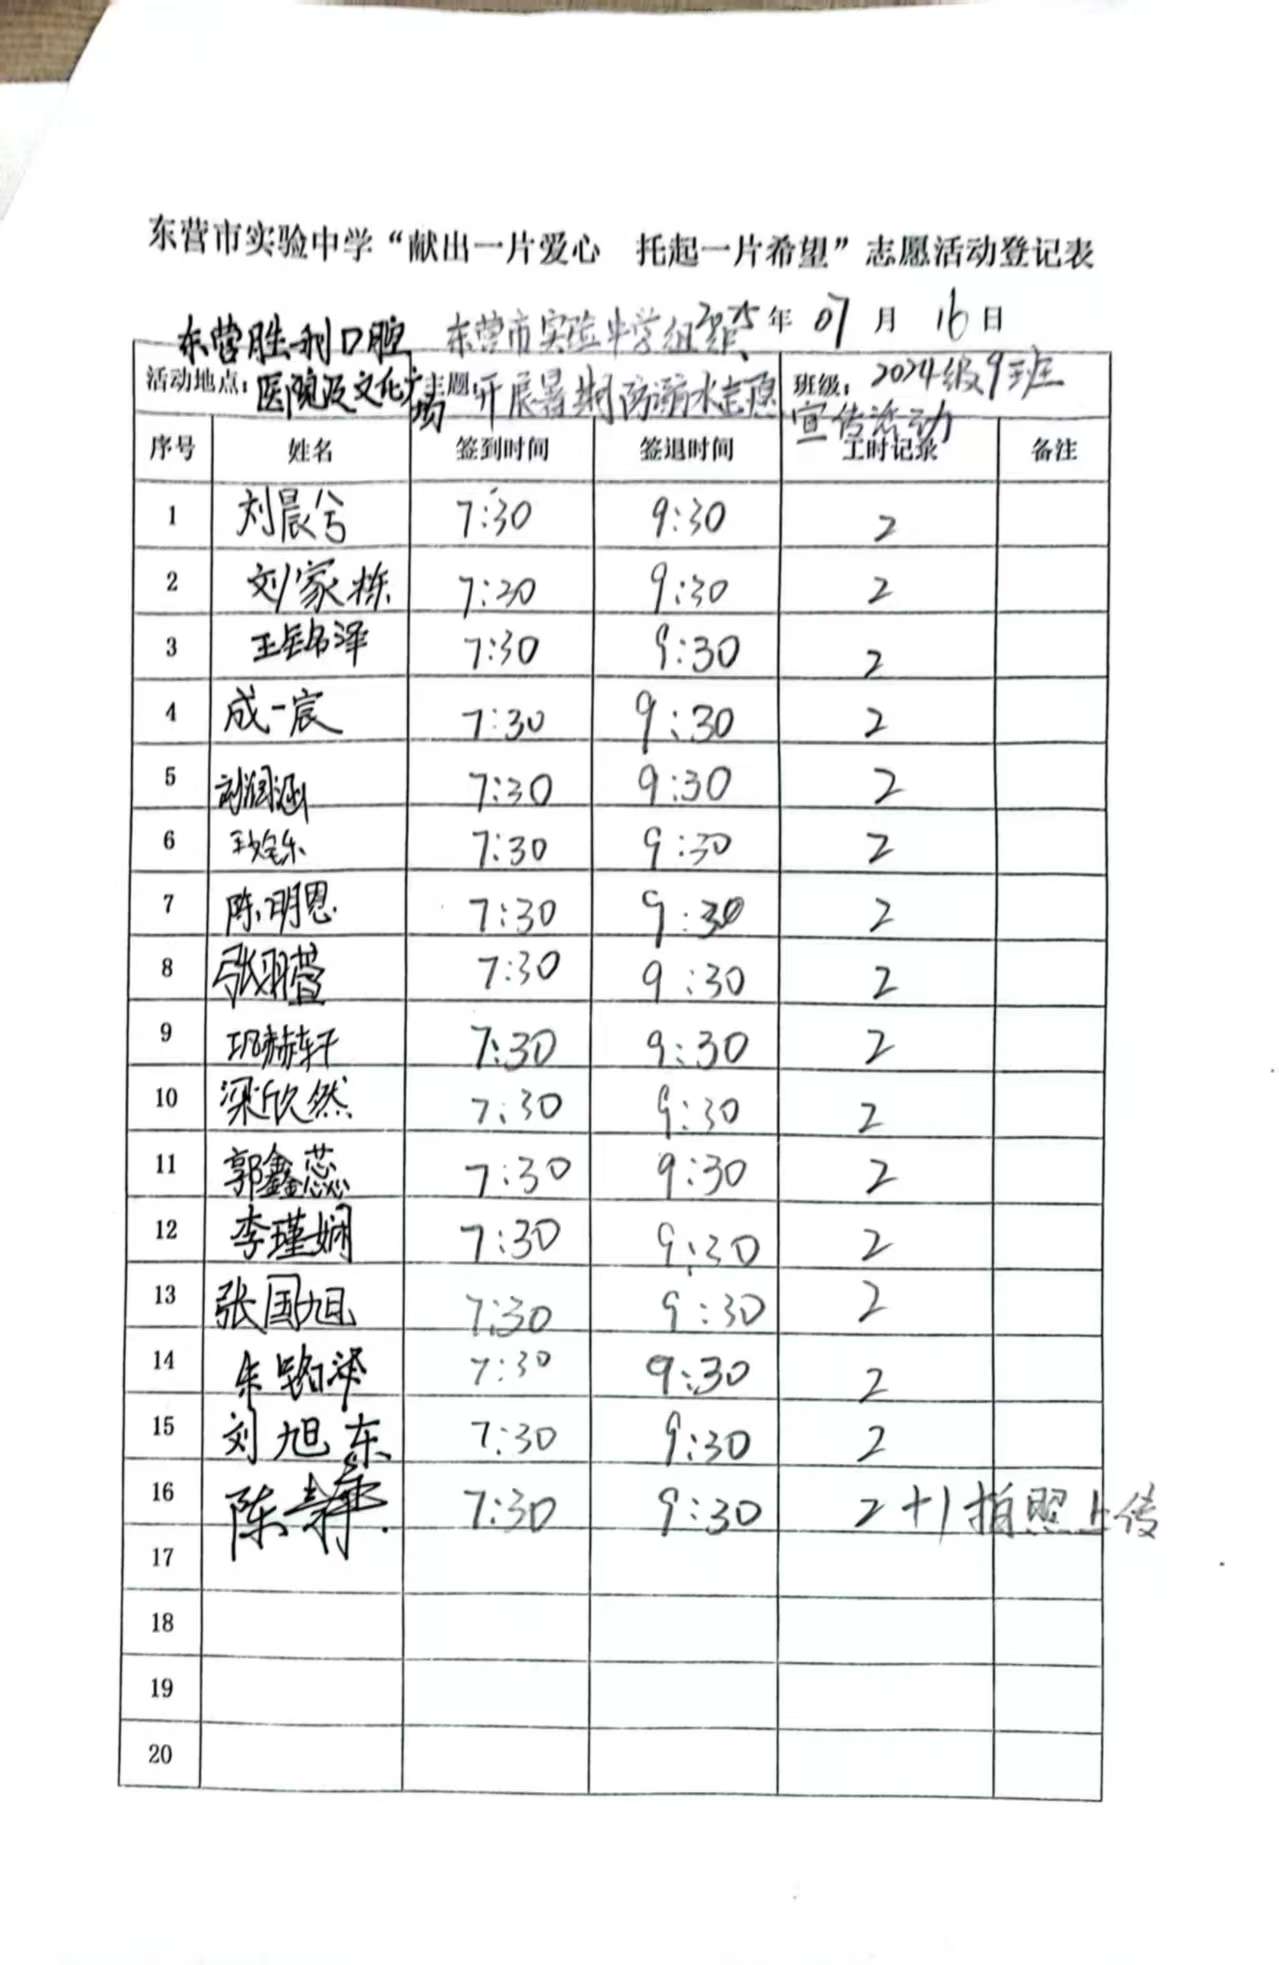 东营市实验中学“献出一片爱心 托起一片希望”志愿活动登记表
2025年 07月 16日
活动地点：东营胜利口腔医院及文化广场 主题：东营市实验中学组织开展暑期防溺水志愿宣传活动 班级：2024级9班
序号 姓名 签到时间 签退时间 工时记录 备注
1 刘晨兮 7:30 9:30 2
2 刘家栋 7:30 9:30 2
3 王岳名泽 7:30 9:30 2
4 成一宸 7:30 9:30 2
5 刘润涵 7:30 9:30 2
6 7:30 9:30 2
7 陈明恩 7:30 9:30 2
8 张羽萱 7:30 9:30 2
9 巩赫轩 7:30 9:30 2
10 梁欣然 7:30 9:30 2
11 郭鑫蕊 7:30 9:30 2
12 李瑾娴 7:30 9:30 2
13 张国旭 7:30 9:30 2
14 朱铭泽 7:30 9:30 2
15 刘旭东 7:30 9:30 2
16 陈静 7:30 9:30 2+1拍照上传
17
18
19
20